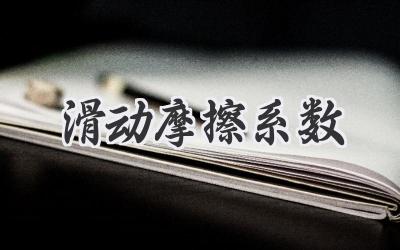 滑动摩擦系数